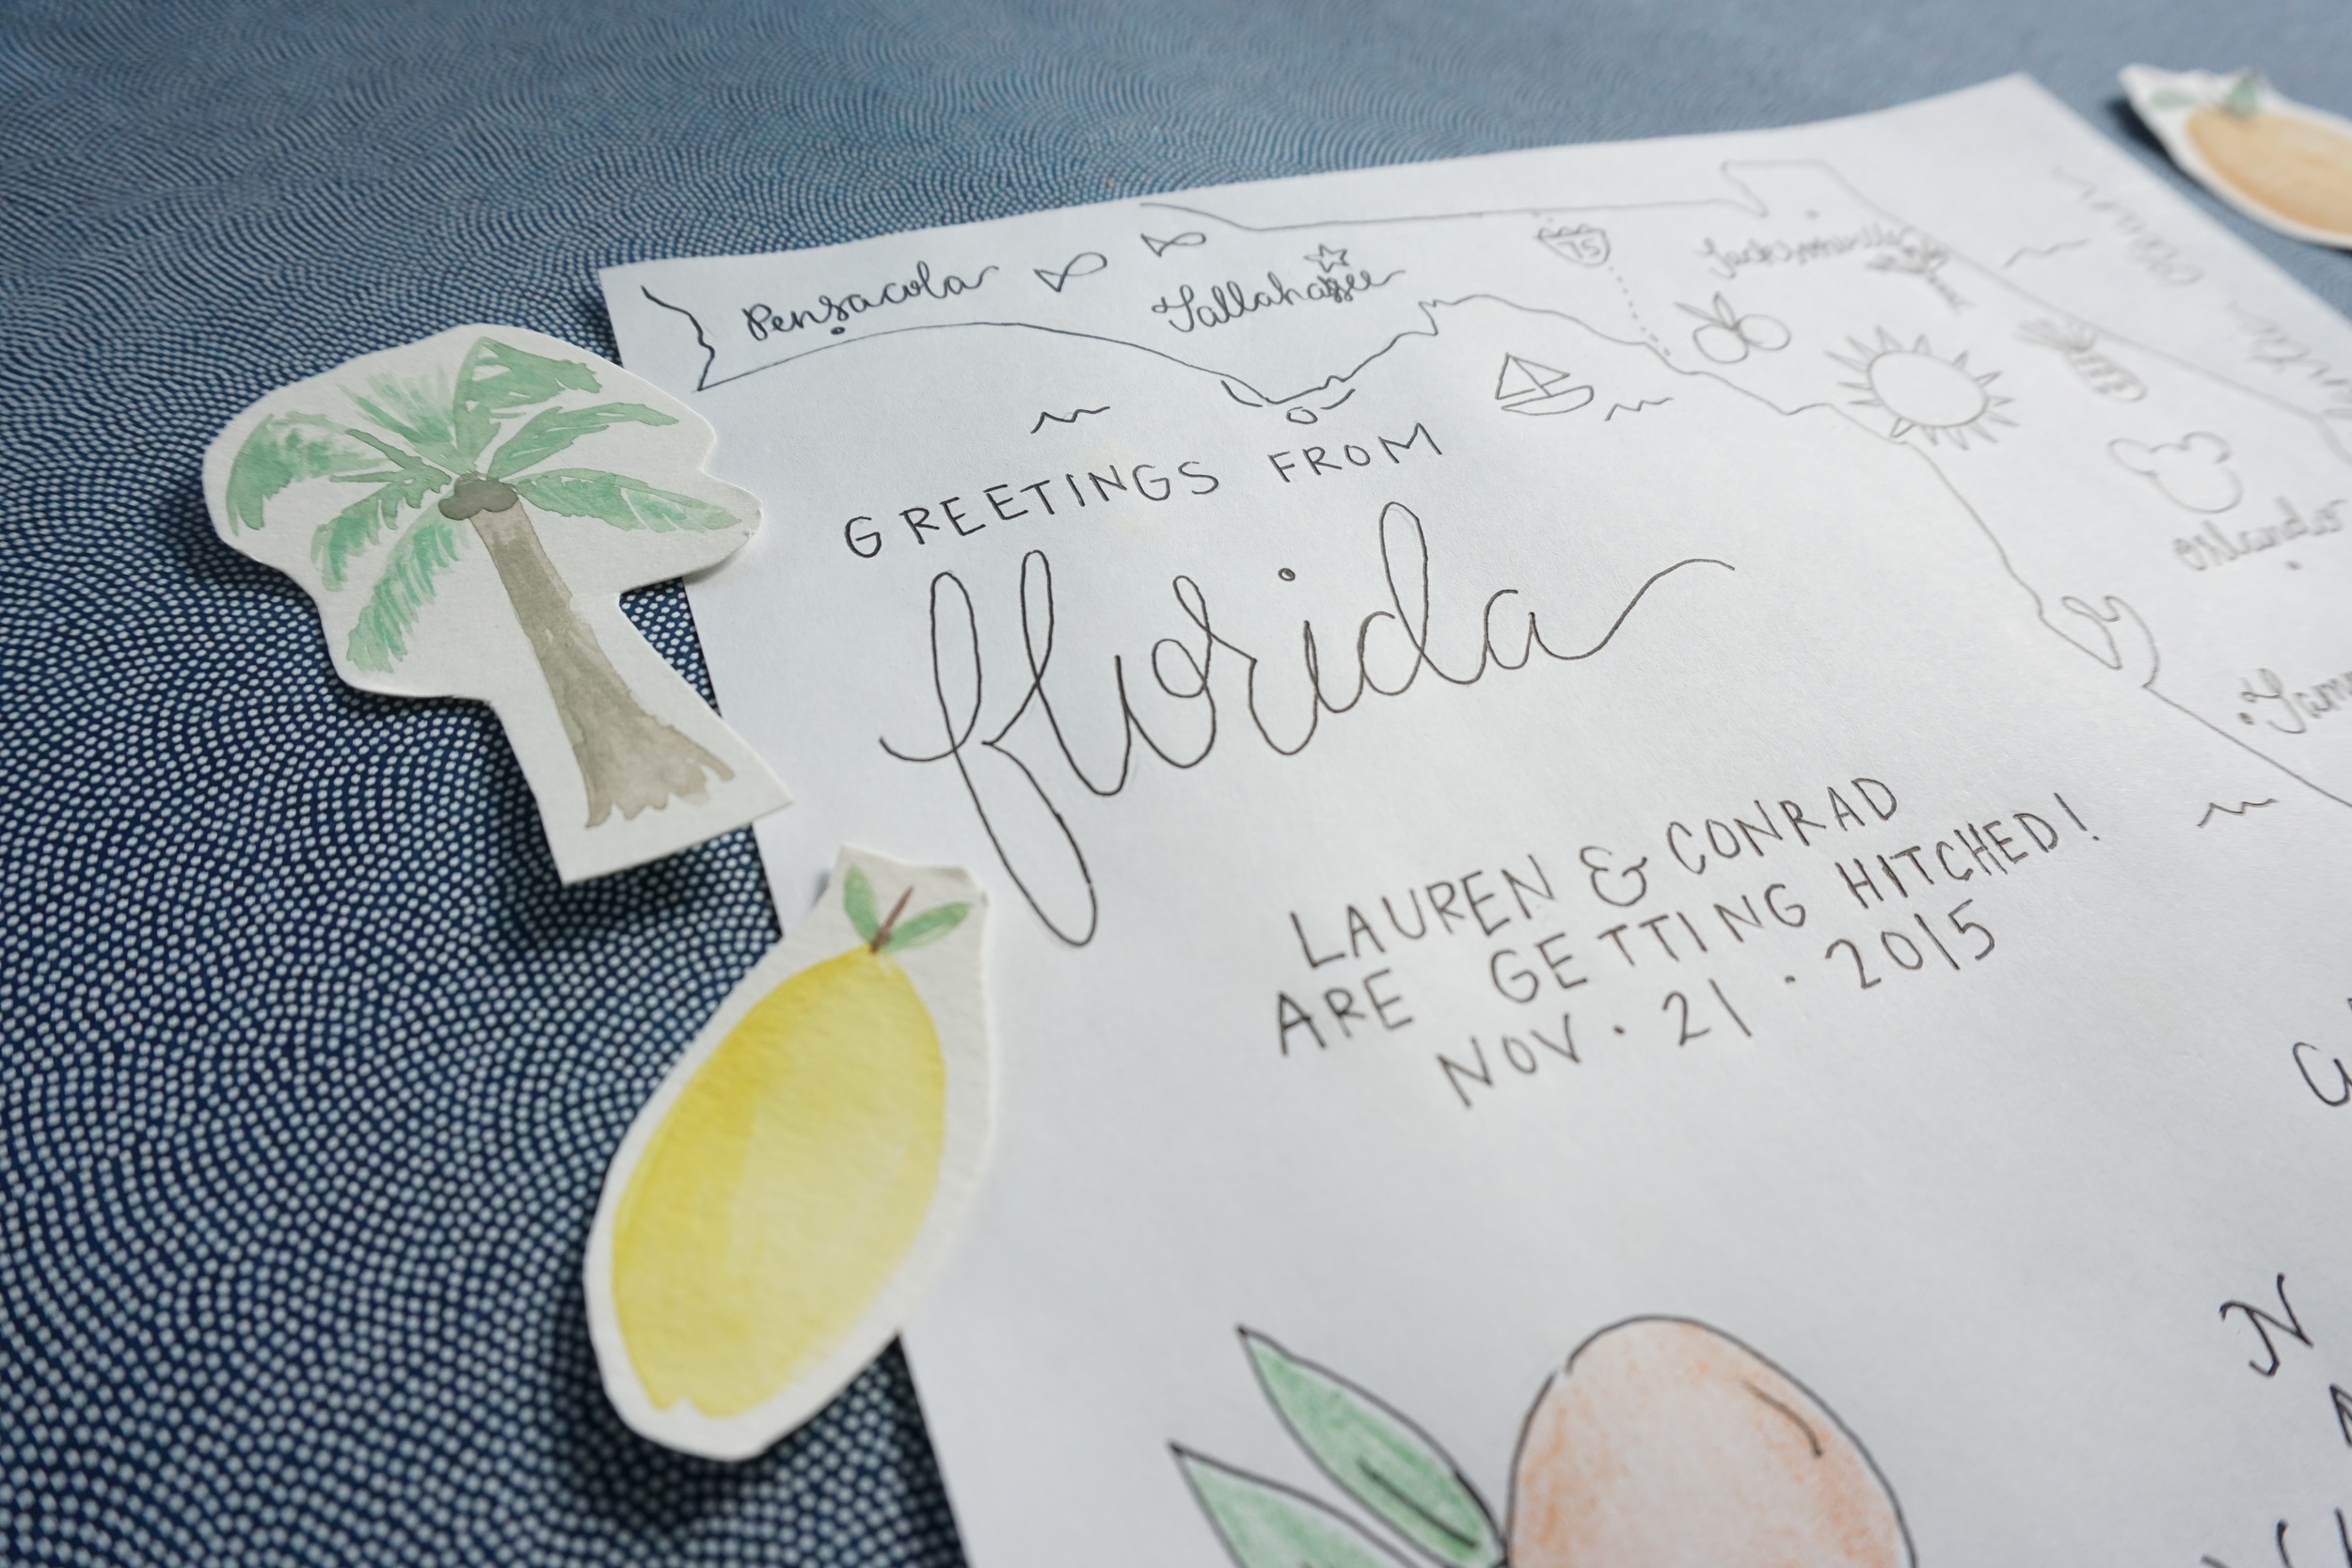 Pensacola
Tallahassee
75
Jacksonville
Ocean
GREETINGS FROM
florida
Orlando
LAUREN & CONRAD
ARE GETTING HITCHED!
NOV · 21 · 2015